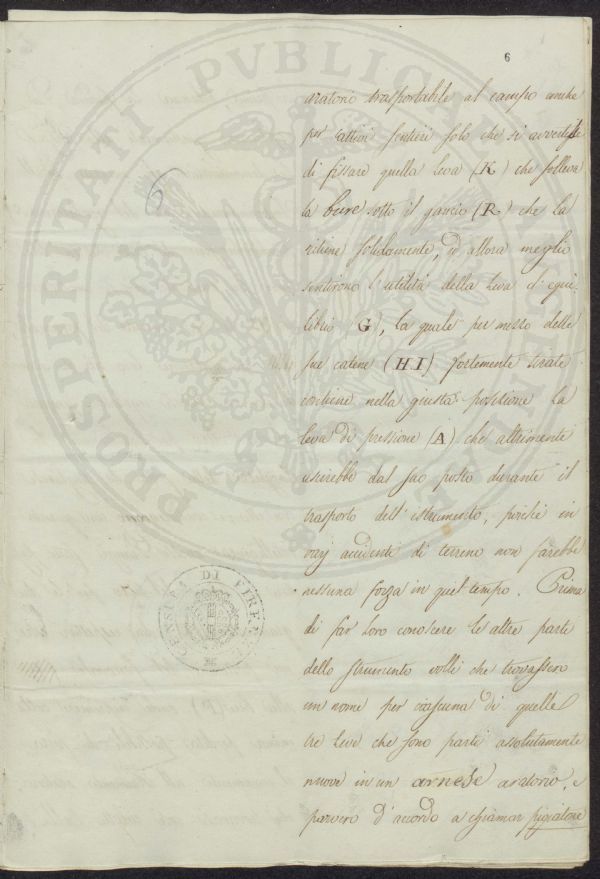 6
6
aratorio trasportabile al campo anche
per cattivi sentieri solo che si avvertisse
di fissare quella leva (K) che solleva
la bure sotto il gancio (R) che la
ritiene solidamente, ed allora meglio
sentirono l'utilità della leva d'equi-
librio G), la quale per mezzo delle
sue catene (H.I) fortemente tirate
contiene nella giusta posizione la
leva di pressione (A) che altrimenti
uscirebbe dal suo posto durante il
trasporto dell'istrumento, poichè in
varj accidenti di terreno non farebbe
nessuna forza in quel tempo. Prima
di far loro conoscere le altre parti
dello strumento volli che trovassero
un nome per ciascuna di quelle
tre leve che sono parti assolutamente
nuove in un arnese aratorio, e
parvero d'accordo a chiamar pigiatore
PROSPERITATI PVBLICAE
CENSURA DI FIRE